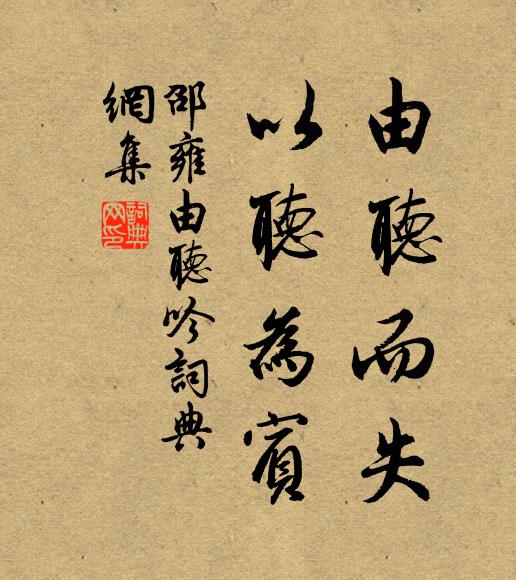 由聽而失
以聽為賓
邵雍由聽吟詞典
網集
詞典
网印